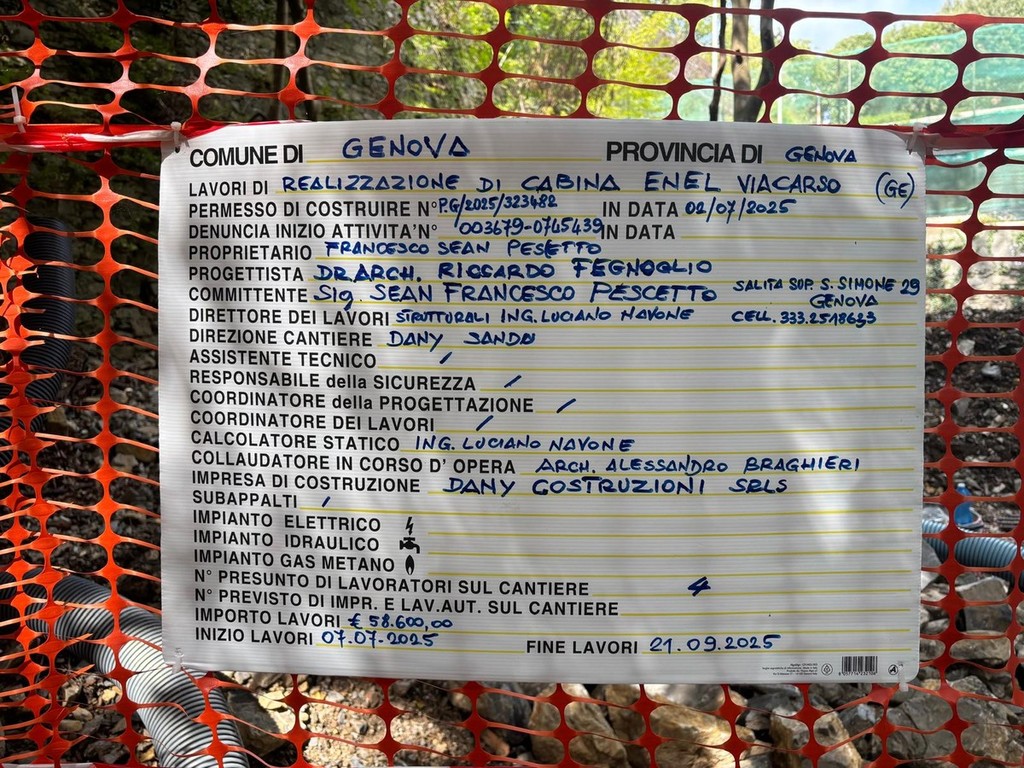 COMUNE DI GENOVA PROVINCIA DI GENOVA
LAVORI DI REALIZZAZIONE DI CABINA ENEL VIA CARSO (GE)
PERMESSO DI COSTRUIRE N° P.G/2025/323482 IN DATA 02/07/2025
DENUNCIA INIZIO ATTIVITA' N° 003679-0745439 IN DATA
PROPRIETARIO FRANCESCO SEAN PESETTO
PROGETTISTA DR.ARCH. RICCARDO FEGNOGLIO
COMMITTENTE Sig. SEAN FRANCESCO PESCETTO SALITA SUP. S. SIMONE 29
GENOVA
DIRETTORE DEI LAVORI STRUTTURALI ING. LUCIANO NAVONE CELL. 333.2518633
DIREZIONE CANTIERE DANY SANDU
ASSISTENTE TECNICO /
RESPONSABILE della SICUREZZA /
COORDINATORE della PROGETTAZIONE /
COORDINATORE DEI LAVORI /
CALCOLATORE STATICO ING. LUCIANO NAVONE
COLLAUDATORE IN CORSO D' OPERA ARCH. ALESSANDRO BRAGHIERI
IMPRESA DI COSTRUZIONE DANY COSTRUZIONI SRLS
SUBAPPALTI /
IMPIANTO ELETTRICO
IMPIANTO IDRAULICO
IMPIANTO GAS METANO
N° PRESUNTO DI LAVORATORI SUL CANTIERE 4
N° PREVISTO DI IMPR. E LAV.AUT. SUL CANTIERE
IMPORTO LAVORI € 58.600,00
INIZIO LAVORI 07.07.2025 FINE LAVORI 21.09.2025